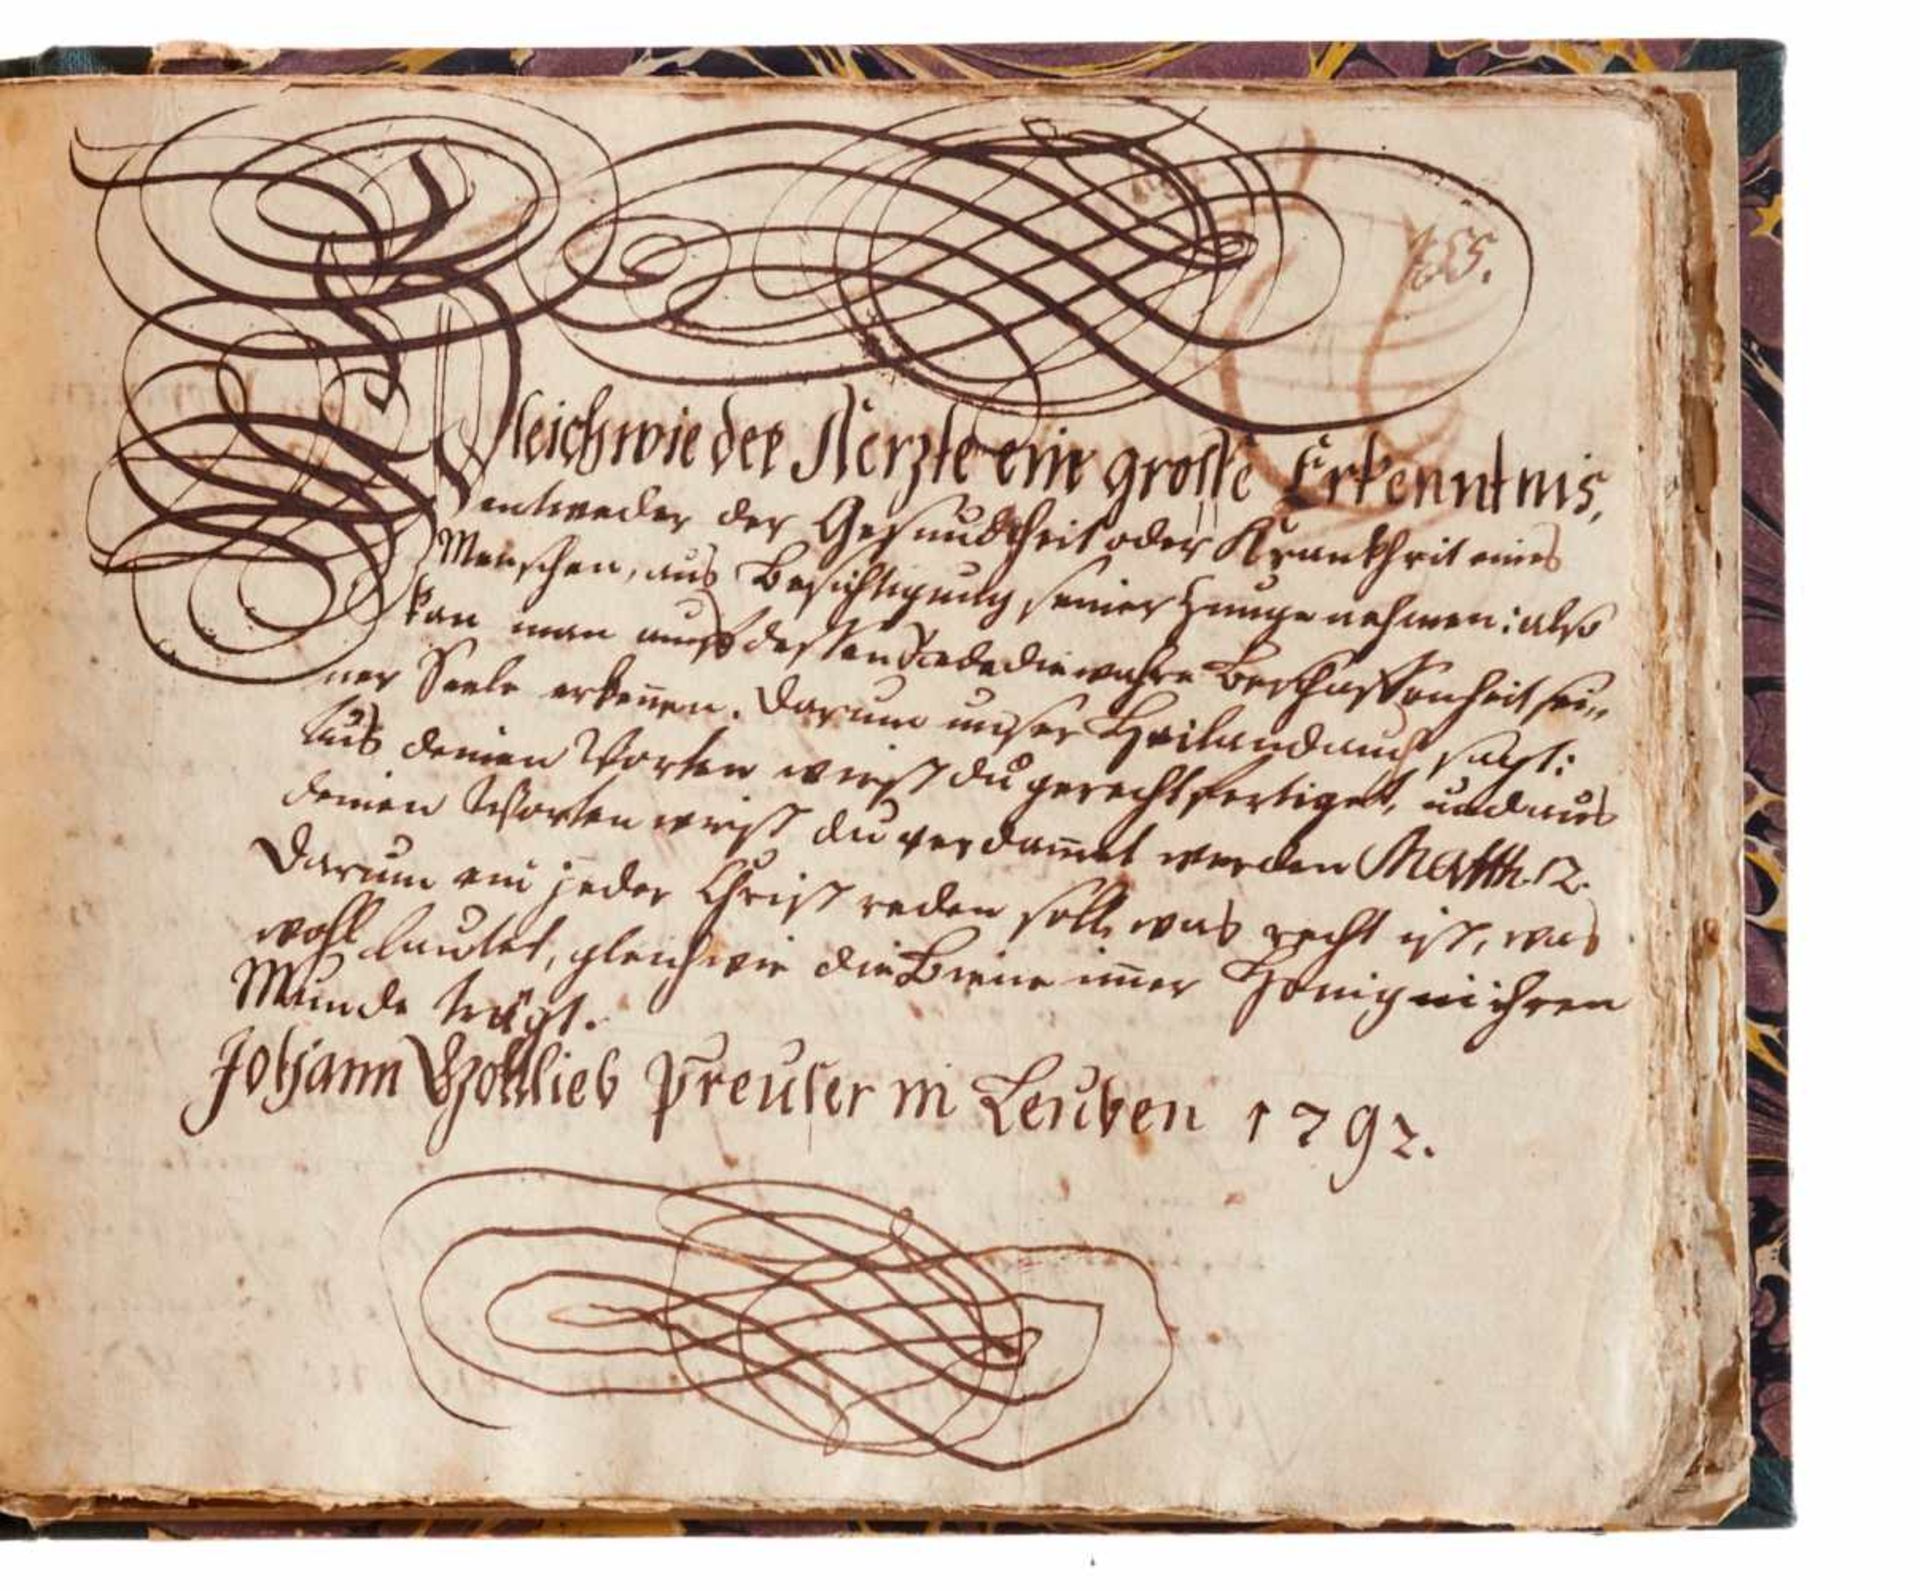 155.
Gleichwie der Aerzte eine grosse Erkenntnis,
entweder der Gesundtheit oder Krankheit eines
Menschen, aus Besichtigung seiner Zunge nehmen: also
kan man auch dessen Rede die wahre Beschaffenheit sei„
ner Seele erkeñen. Darum unser Heiland auch sagt:
Aus deinen Worten wirst du gerechtfertiget, und aus
deinen Worten wirst du verdam̃et werden Matth. 12.
Darum ein jeder Christ reden soll, was recht ist, was
wohl lautet, gleich wie die Biene im̃er Honig in ihren
Munde trägt.
Johann Gottlieb Preuser in Leuben 1792.